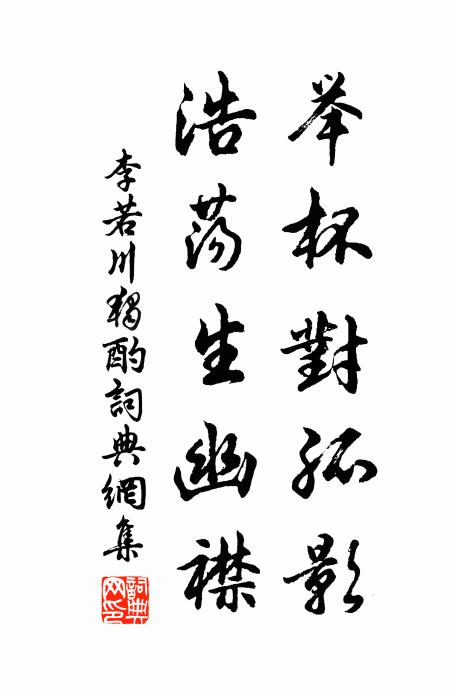 举杯對孤影
浩荡生幽襟
李若川獨酌詞典網集
詞典網印